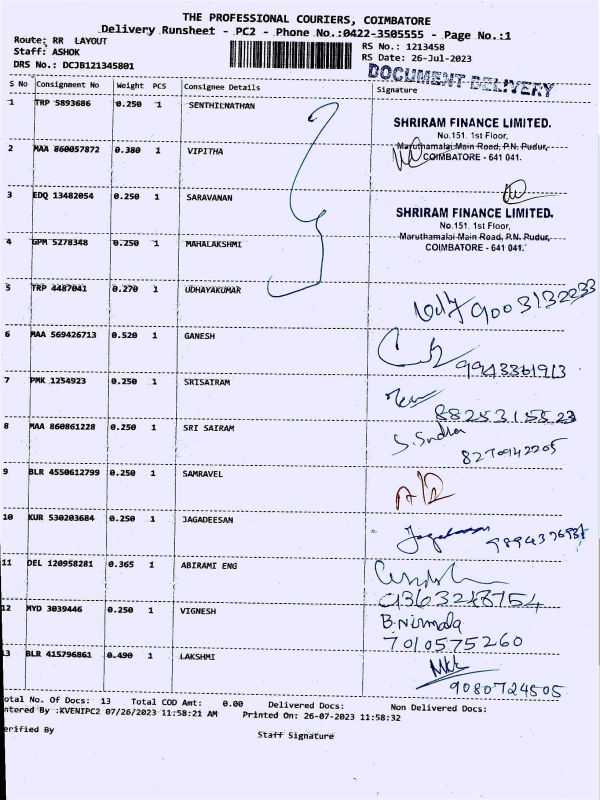 THE PROFESSIONAL COURIERS, COIMBATORE
Delivery Runsheet - PC2 - Phone No.:0422-3505555 - Page No.:1
Route: RR LAYOUT
RS No.: 1213458
Staff: ASHOK
RS Date: 26-Jul-2023
DRS No.: DCJB121345801
DOCUMENT DELIVERY
S No Consignment No Weight PCS Consignee Details Signature
1 TRP 5893686 0.250 1 SENTHILNATHAN
SHRIRAM FINANCE LIMITED.
No.151. 1st Floor,
Maruthamalai Main Road, P.N. Pudur,
COIMBATORE - 641 041.
2 MAA 860057872 0.380 1 VIPITHA
3 EDQ 13482054 0.250 1 SARAVANAN
SHRIRAM FINANCE LIMITED.
No.151. 1st Floor,
Maruthamalai Main Road, P.N. Pudur,
COIMBATORE - 641 041.
4 GPM 5278348 0.250 1 MAHALAKSHMI
5 TRP 4487041 0.270 1 UDHAYAKUMAR
9003132233
6 MAA 569426713 0.520 1 GANESH
9943361913
7 PMK 1254923 0.250 1 SRISAIRAM
8825315523
8 MAA 860861228 0.250 1 SRI SAIRAM
S. Sudha
8270942205
9 BLR 4550612799 0.250 1 SAMRAVEL
10 KUR 530203684 0.250 1 JAGADEESAN
11 DEL 120958281 0.365 1 ABIRAMI ENG
9363248754
12 MYD 3039446 0.250 1 VIGNESH
B. Nirmala
7010575260
13 BLR 415796861 0.490 1 LAKSHMI
9080724505
otal No. Of Docs: 13 Total COD Amt: 0.00 Delivered Docs: Non Delivered Docs:
ntered By :KVENIPC2 07/26/2023 11:58:21 AM Printed On: 26-07-2023 11:58:32
erified By
Staff Signature